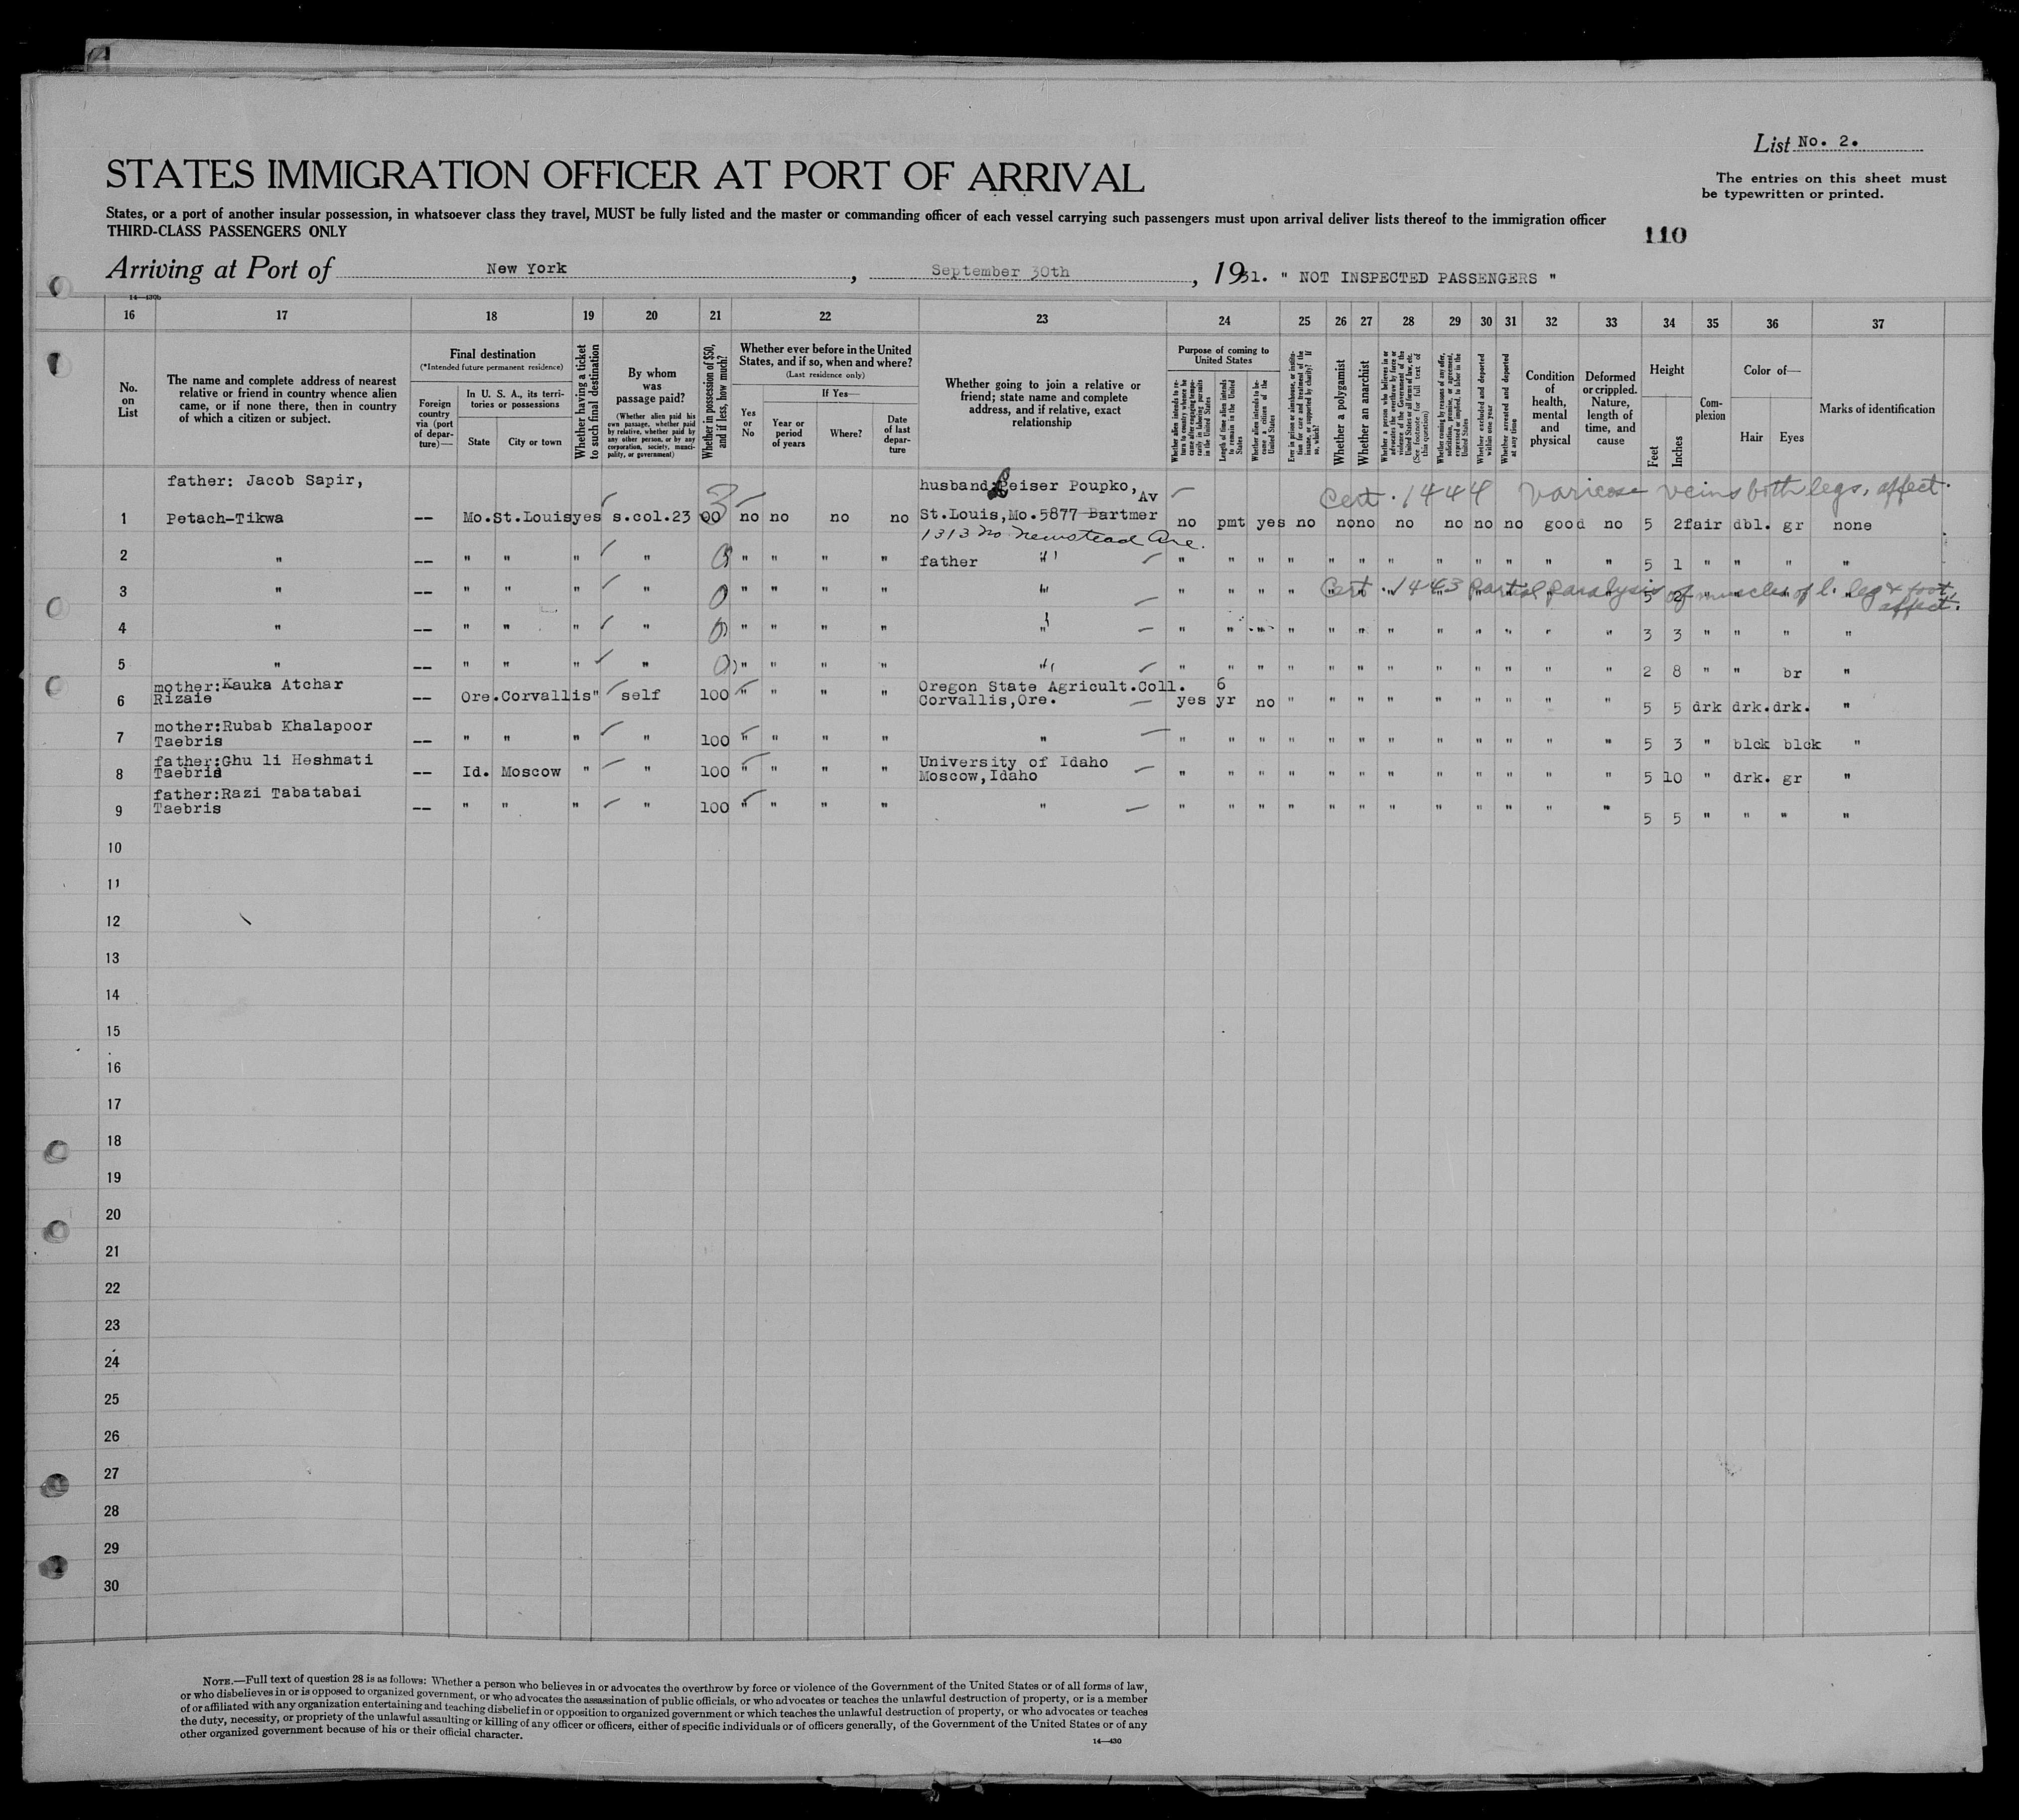 List No. 2.
STATES IMMIGRATION OFFICER AT PORT OF ARRIVAL
The entries on this sheet must
be typewritten or printed.
States, or a port of another insular possession, in whatsoever class they travel, MUST be fully listed and the master or commanding officer of each vessel carrying such passengers must upon arrival deliver lists thereof to the immigration officer
THIRD-CLASS PASSENGERS ONLY
110
Arriving at Port of New York, September 30th, 1931. " NOT INSPECTED PASSENGERS "
14—430b
16 17 18 19 20 21 22 23 24 25 26 27 28 29 30 31 32 33 34 35 36 37
No. on List
The name and complete address of nearest relative or friend in country whence alien came, or if none there, then in country of which a citizen or subject.
Final destination
(*Intended future permanent residence)
Foreign country via (port of departure)—
In U. S. A., its territories or possessions
State
City or town
Whether having a ticket to such final destination
By whom was passage paid?
(Whether alien paid his own passage, whether paid by relative, whether paid by any other person, or by any corporation, society, municipality, or government)
Whether in possession of $50, and if less, how much?
Whether ever before in the United States, and if so, when and where?
(Last residence only)
Yes or No
If Yes—
Year or period of years
Where?
Date of last departure
Whether going to join a relative or friend; state name and complete address, and if relative, exact relationship
Purpose of coming to United States
Whether alien intends to return to country whence he came after engaging temporarily in laboring pursuits in the United States
Length of time alien intends to remain in the United States
Whether alien intends to become a citizen of the United States
Ever in prison or almshouse, or institution for care and treatment of the insane, or supported by charity? If so, which?
Whether a polygamist
Whether an anarchist
Whether a person who believes in or advocates the overthrow by force or violence of the Government of the United States or all forms of law, etc. (See footnote for full text of this question)
Whether coming by reasons of any offer, solicitation, promise, or agreement, expressed or implied, to labor in the United States
Whether excluded and deported within one year
Whether arrested and deported at any time
Condition of health, mental and physical
Deformed or crippled. Nature, length of time, and cause
Height
Feet
Inches
Complexion
Color of—
Hair
Eyes
Marks of identification
father: Jacob Sapir, husband: Leiser Poupko, Av Cert. 1444 varicose veins both legs, affect.
1 Petach-Tikwa -- Mo. St.Louis yes s.col.23 00 no no no no St.Louis,Mo.5877 Bartmer no pmt yes no no no no no no no good no 5 2 fair dbl. gr none
1313 No Newstead Ave.
2 " -- " " " " 0 " " " " father " " " " " " " " " " " " " 5 1 " " " "
3 " -- " " " " 0 " " " " " " " " " Cert. 1443 partial paralysis of muscles of l. leg & foot, affect. 5 2 " "
4 " -- " " " " 0 " " " " " " " " " " " " " " " " " 3 3 " " " "
5 " -- " " " " 0 " " " " " " " " " " " " " " " " " 2 8 " " br "
mother:Kauka Atchar Oregon State Agricult.Coll. 6
6 Rizaie -- Ore. Corvallis " self 100 " " " " Corvallis,Ore. yes yr no " " " " " " " " " 5 5 drk drk. drk. "
mother:Rubab Khalapoor
7 Taebris -- " " " " 100 " " " " " " " " " " " " " " " " " 5 3 " blck blck "
father:Ghu li Heshmati University of Idaho
8 Taebris -- Id. Moscow " " 100 " " " " Moscow,Idaho " " " " " " " " " " " " 5 10 " drk. gr "
father:Razi Tabatabai
9 Taebris -- " " " " 100 " " " " " " " " " " " " " " " " " 5 5 " " " "
10
11
12
13
14
15
16
17
18
19
20
21
22
23
24
25
26
27
28
29
30
NOTE.—Full text of question 28 is as follows: Whether a person who believes in or advocates the overthrow by force or violence of the Government of the United States or of all forms of law,
or who disbelieves in or is opposed to organized government, or who advocates the assassination of public officials, or who advocates or teaches the unlawful destruction of property, or is a member
of or affiliated with any organization entertaining and teaching disbelief in or opposition to organized government or which teaches the unlawful destruction of property, or who advocates or teaches
the duty, necessity, or propriety of the unlawful assaulting or killing of any officer or officers, either of specific individuals or of officers generally, of the Government of the United States or of any
other organized government because of his or their official character.
14—430